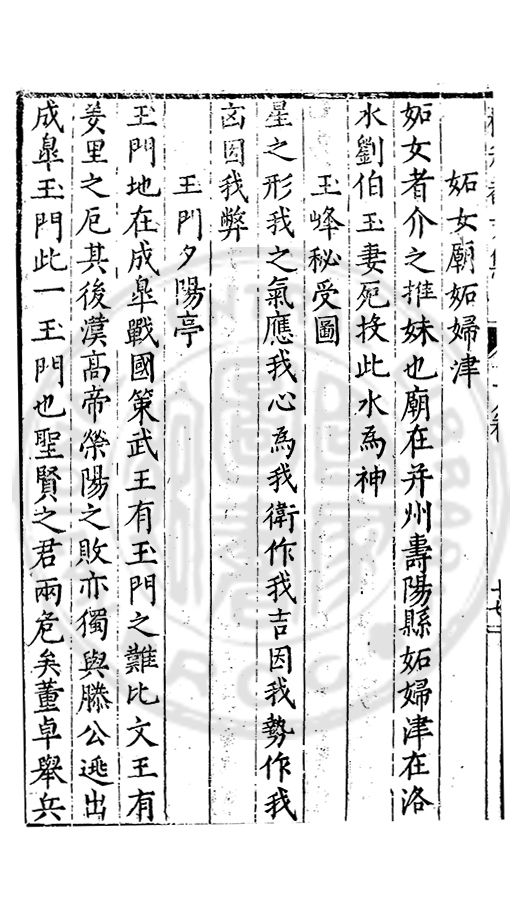 妬女廟妬婦津
妬女者介之推妹也廟在并州壽陽縣妬婦津在洛
水劉伯玉妻死投此水為神
玉峰秘受圖
星之形我之氣應我心為我衛作我吉因我勢作我
凶因我弊
玉門夕陽亭
玉門地在成臯戰國策武王有玉門之難比文王有
羑里之厄其後漢高帝滎陽之敗亦獨與滕公逃出
成臯玉門此一玉門也聖賢之君兩危矣董卓舉兵